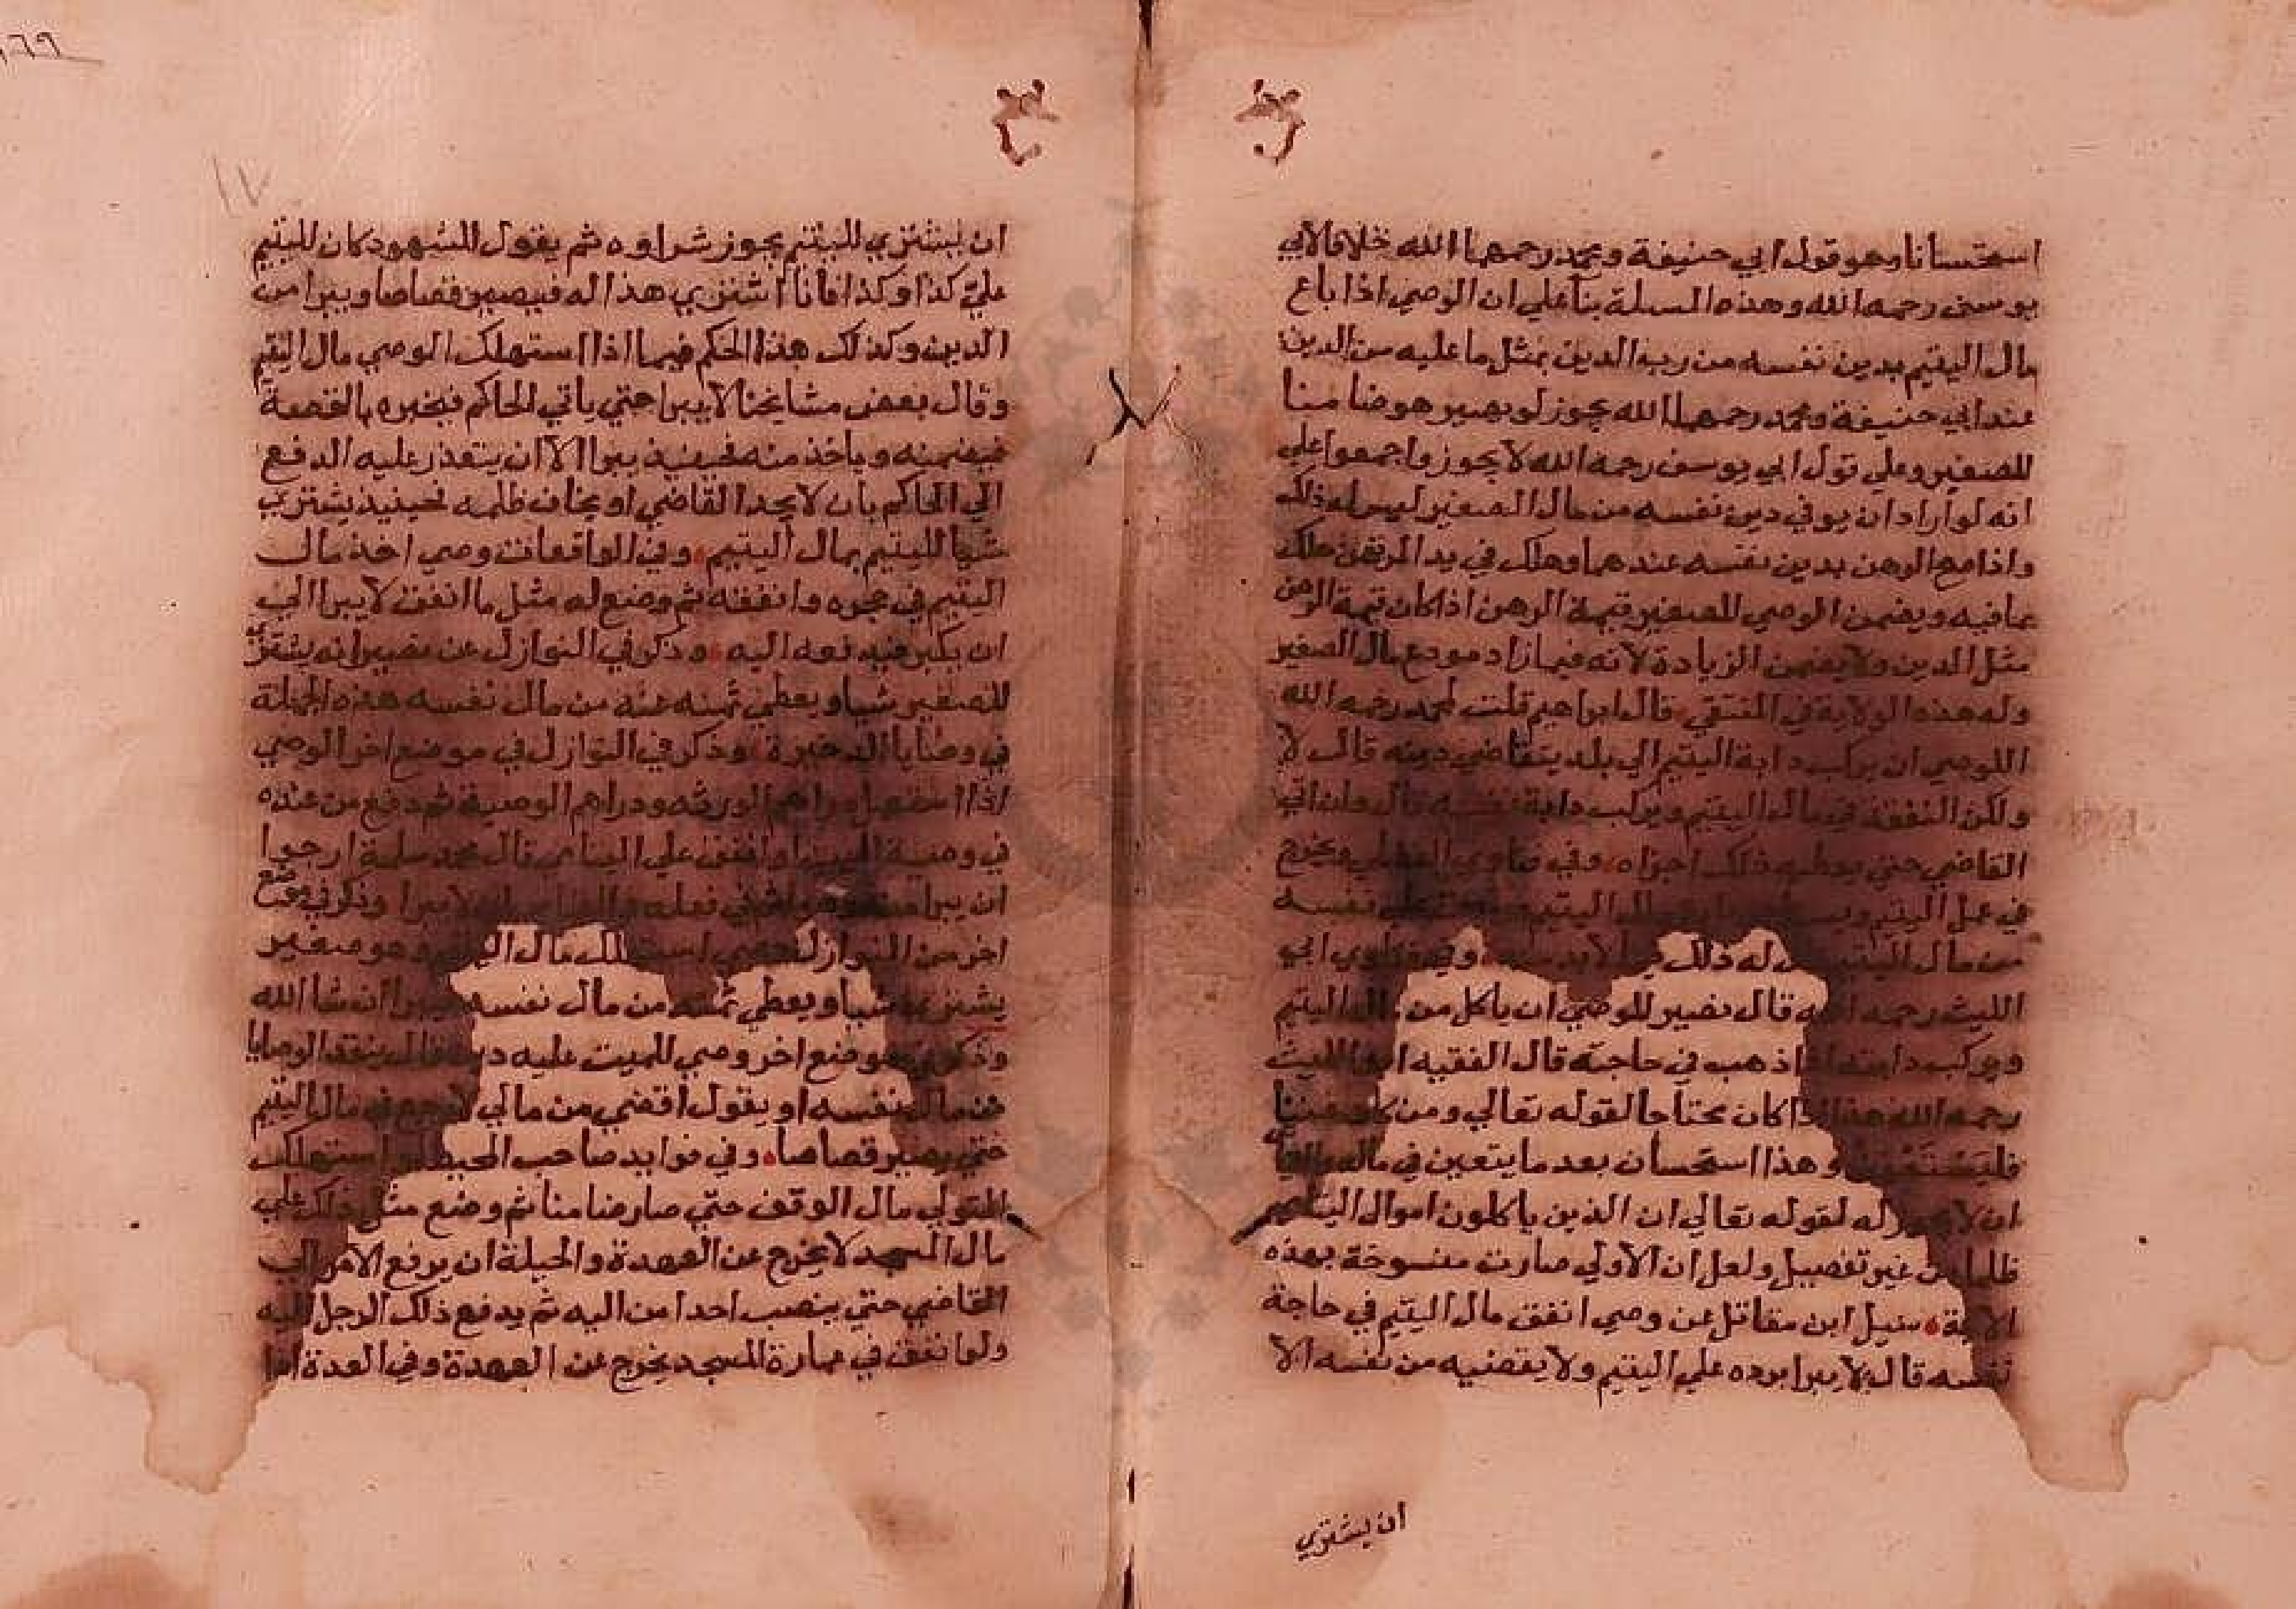 استحسانا وهو قول ابي حنيفة ومحمد رحمهما الله خلافا لابي
يوسف رحمه الله وهذه المسلة بنا علي ان الوصي اذا باع
مال اليتيم بدين نفسه من رب الدين بمثل ما عليه من الدين
عند ابي حنيفة ومحمد رحمهما الله يجوز لو يصير هو ضامنا
للصغير وعلي قول ابي يوسف رحمه الله لا يجوز واجمعوا علي
انه لو اراد ان يوفي دين نفسه من مال الصغير ليس له ذلك
واذا صح الرهن بدين نفسه عندهما وهلك في يد المرتهن هلك
بما فيه ويضمن الوصي للصغير قيمة الرهن اذا كان قيمة الرهن
مثل الدين ولا يضمن الزيادة لانه فيما زاد مودع مال الصغير
وله هذه الولاية في المنتقي قال ابراهيم قلت لمحمد رحمه الله
اللوصي ان يركب دابة اليتيم الي بلد يتقاضي دينه قال لا
ولكن النفقة في مال اليتيم ويركب دابة نفسه قال وان اتي
القاضي حتي يعطيه ذلك اجزاه وفي فتاوي ويخرج
في عمل اليتيم مال اليتيم علي نفسه
من مال اليتيم له ذلك لا بد وفي فتاوي ابي
الليث رحمه الله قال نصير للوصي ان ياكل من مال اليتيم
ويركب دابته اذا ذهب في حاجته قال الفقيه ابو الليث
رحمه الله هذا اذا كان محتاجا لقوله تعالي ومن كان غنيا
فليستعفف وهذا استحسان بعد ما يتعين في ماله
ان لا يجوز له لقوله تعالي ان الذين ياكلون اموال اليتامي
ظلما من غير تفصيل ولعل ان الاولي صارت منسوخة بهذه
الاية سئيل ابن مقاتل عن وصي انفق مال اليتيم في حاجة
نفسه قال لا يبرا برده علي اليتيم ولا يقضيه من نفسه الا
ان يشتري
١٦٩
١٧
ان يشتري لليتيم يجوز شراوه ثم يقول للشهود كان لليتيم
علي كذا وكذا فانا اشتري هذا له فيصير قصاصا ويبرا من
الدين وكذلك هذا الحكم فيما اذا استهلك الوصي مال اليتيم
وقال بعض مشايخنا لا يبرا حتي ياتي الحاكم فيخبره بالقصة
فيضمنه وياخذ منه فحينيذ يبرا الا ان يتعذر عليه الدفع
الي الحاكم بان لا يجد القاضي او يخاف ظلمه فحينيذ يشتري
شيا لليتيم بمال اليتيم وفي الواقعات وصي اخذ مال
اليتيم في حجره وانفقه ثم وضع له مثل ما انفق لا يبرا الي
ان يكبر فيدفعه اليه وذكر في النوازل عن نصير انه يشتري
للصغير شيا ويعطي ثمنه عنه من مال نفسه هذه الجملة
في وصايا الذخيرة وذكر في النوازل في موضع اخر الوصي
اذا دراهم الورثه ودراهم الوصية ثم دفع من عنده
في وصية الميت او انفق علي اليتامي قال محمد سلمة ارجوا
ان يبرا فعله لا يبرا وذكر في موضع
اخر من النوازل وصي استهلك مال اليتيم وهو صغير
يشتري شيا ويعطي ثمنه من مال نفسه ويبرا ان شا الله
وذكر في موضع اخر وصي للميت عليه دين قال ينفذ الوصايا
من مال نفسه او يقول اقضي من مالي لارجع في مال اليتيم
حتي يصير قصاصا وفي فوايد صاحب المحيط لو استهلك
المتولي مال الوقف حتي صار ضامنا ثم وضع مثل ذلك علي
مال المسجد لا يخرج عن العهدة والحيلة ان يرفع الامر الي
القاضي حتي ينصب احدا من اليه ثم يدفع ذلك الرجل اليه
ولو انفق في عمارة المسجد يخرج عن العهدة وفي العدة اذا